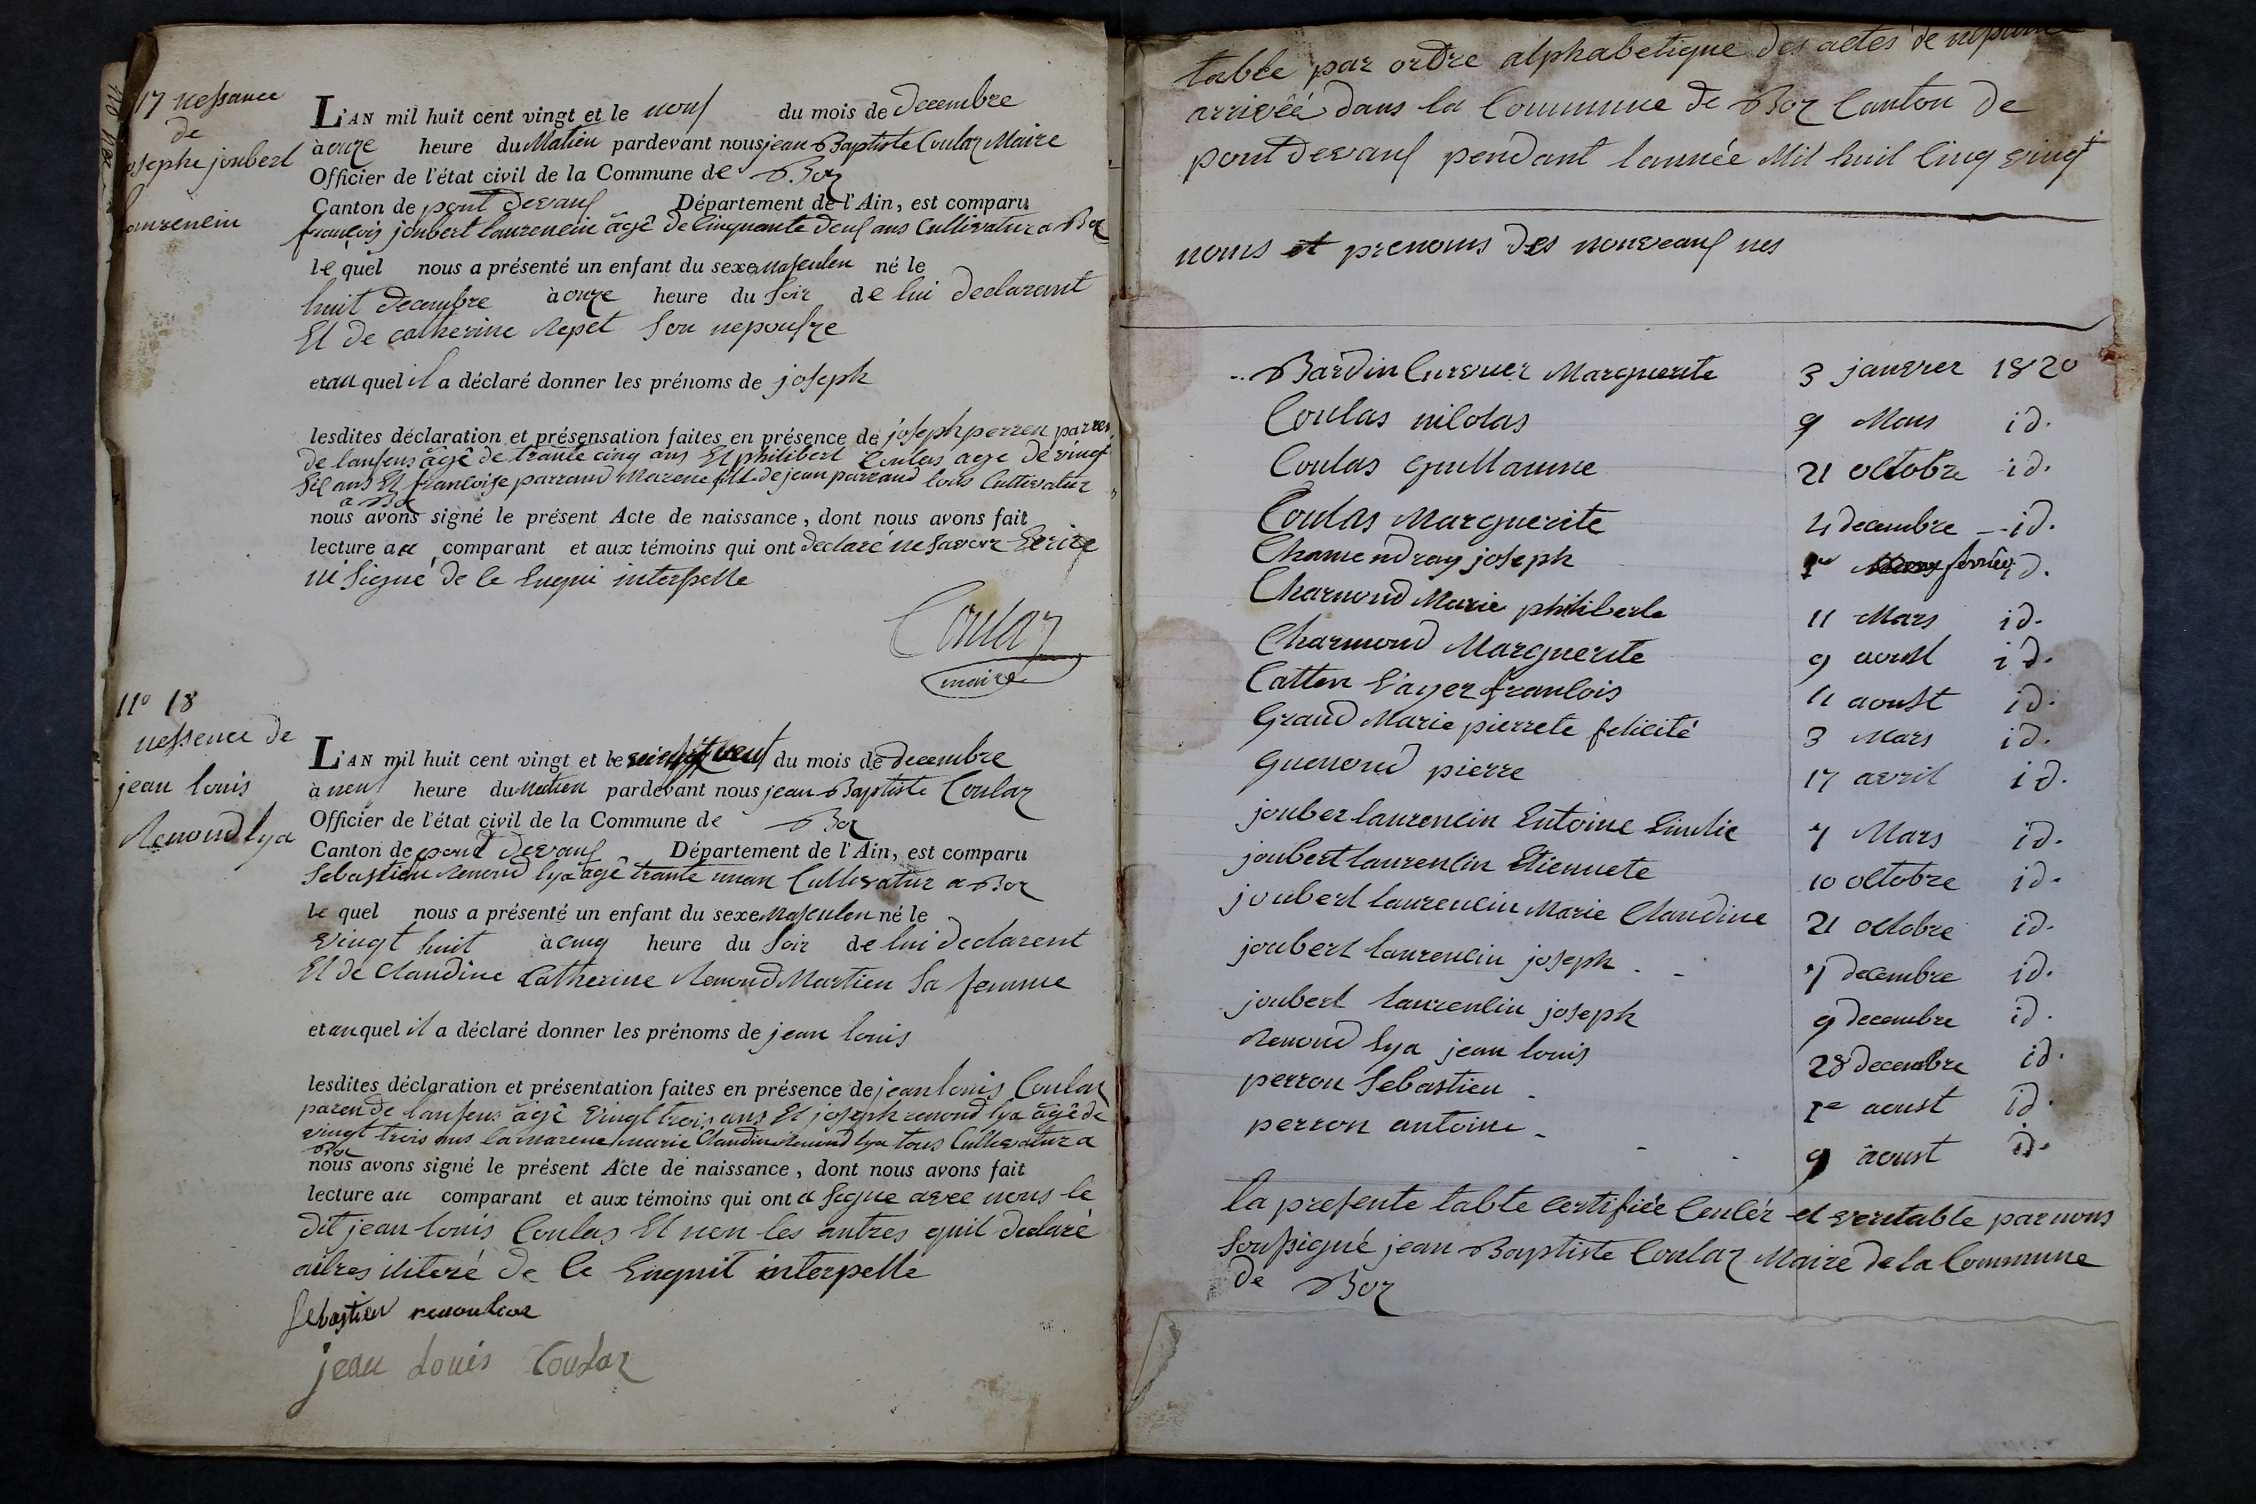 17 nessance
de
josephe joubert
laurencin
L'AN mil huit cent vingt et le neuf du mois de decembre
à onze heure du Matien pardevant nous jean Baptiste Coulaz Maire
Officier de l'état civil de la Commune de Boz
Canton de pont devaux Département de l'Ain, est comparu
francois joubert laurencin âgé de cinquante deux ans Cultivatur a Boz
le quel nous a présenté un enfant du sexe masculen né le
huit decembre à onze heure du soir de lui declarant
Et de catherine Repet son nepousze
et au quel il a déclaré donner les prénoms de joseph
lesdites déclaration et présensation faites en présence de joseph perren parren
de lanfens âgé de trante cinq ans Et philibert Coulas age de vingt
six ans Et francoise parraud Marene fille de jean parraud tous Cultivatur
a Boz
nous avons signé le présent Acte de naissance, dont nous avons fait
lecture au comparant et aux témoins qui ont declaré ne savoir Ecrire
ni signé de ce Enquis interpelle
Coulaz
maire
No 18
nessence de
jean louis
Renoud lya
L'AN mil huit cent vingt et le vingt neuf du mois de decembre
à neuf heure du Matien pardevant nous jean Baptiste Coulaz
Officier de l'état civil de la Commune de Boz
Canton de pont devaux Département de l'Ain, est comparu
Sebastien Renoud lya âgé trante unan Cultivatur a Boz
le quel nous a présenté un enfant du sexe Masculen né le
vingt huit à cinq heure du soir de lui declarent
Et de Claudine Catherine Renoud Martien Sa femme
et au quel il a déclaré donner les prénoms de jean louis
lesdites déclaration et présentation faites en présence de jean louis Coulaz
paren de lanfens âgé vingt trois ans Et joseph renoud lya âgé de
vingt trois ans la marene marie Claudine Renoud lya tous Cultivatur a
Boz
nous avons signé le présent Acte de naissance, dont nous avons fait
lecture au comparant et aux témoins qui ont a signe avec nous le
dit jean louis Coulas Et non les autres quil declaré
aitres iliteré de ce Enquit interpellé
Sebastien renoulia
jean Louis Coulaz
table par ordre alphabetique des actes de
arrivéé dans la Commune de Boz Canton de
pont devaux pendant lannée Mil huit Cinq vingt
noms et prenoms des nouveaux nes
Bardin Curvuer Marguerite 3 janvier 1820
Coulas nicolas 9 Mars id.
Coulas guillaume 21 octobre id.
Coulas Marguerite 4 decembre id.
Chamendray joseph 1er fevrier id.
Charnoud Marie philiberte 11 Mars id.
Charnoud Marguerite 9 aoust id.
Catten L'ager francois 11 aoust id.
Graud Marie pierrete felicité 3 Mars id.
Guenoud pierre 17 avril id.
jouber laurencin Entoine Emilie 7 Mars id.
joubert laurencin Etiennete 10 octobre id.
joubert laurencin Marie Claudine 21 octobre id.
joubert laurencin joseph 7 decembre id.
joubert laurencin joseph 9 decembre id.
Renoud lya jean louis 28 decembre id.
perron Sebastien 1e aoust id.
perron antoine 9 aoust id.
la presente table certifiée Cenlér et veritable par nous
soussigné jean Baptiste Coulaz Maire de la Commune
de Boz